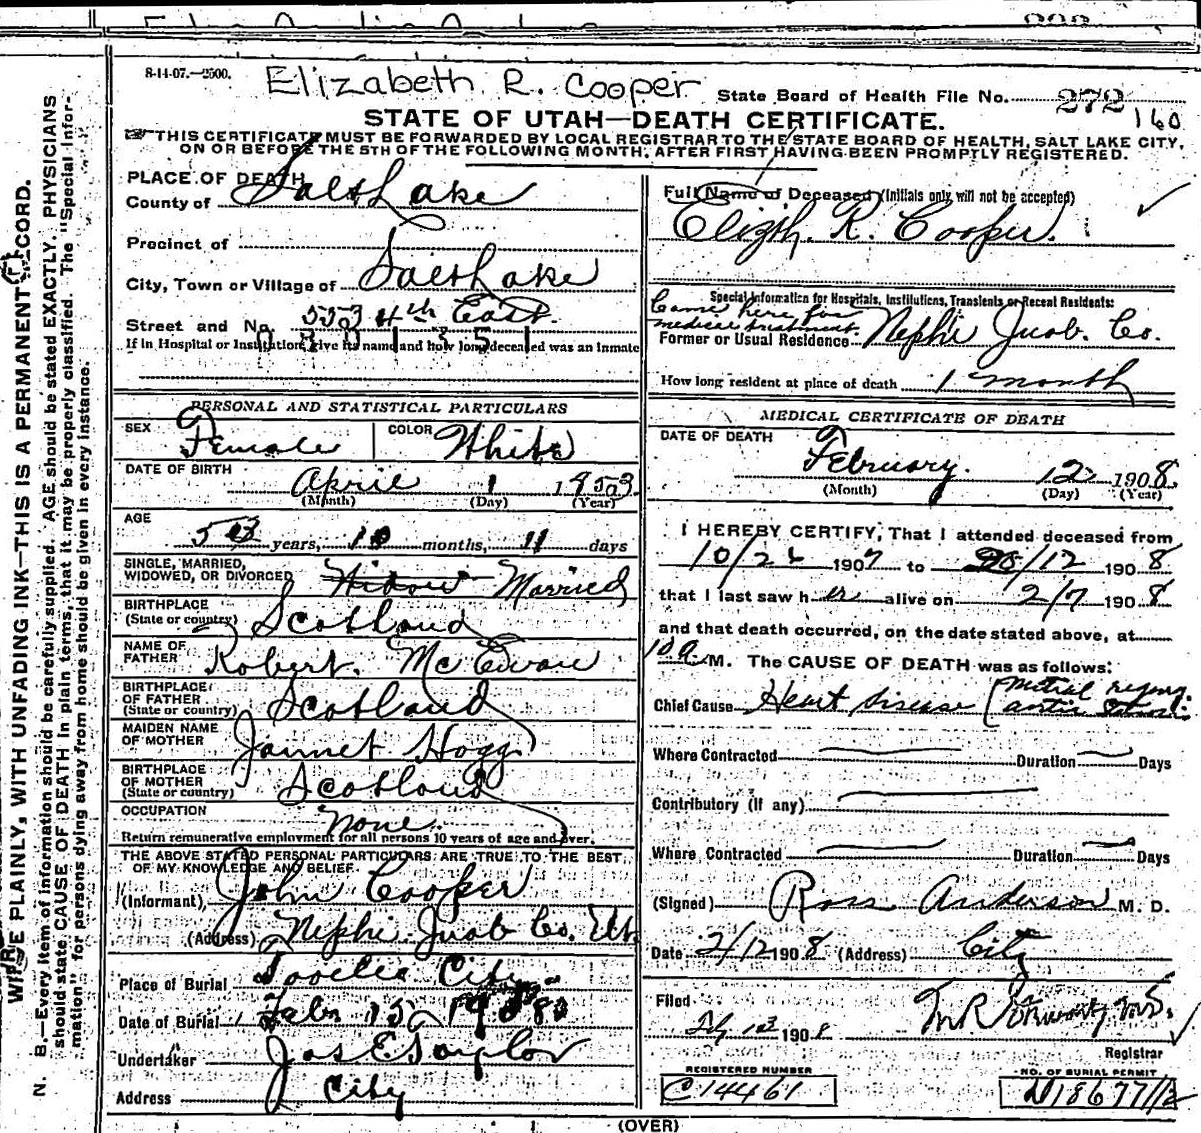 8-14-07.—2500.
Elizabeth R. Cooper
State Board of Health File No. 272 160
STATE OF UTAH—DEATH CERTIFICATE.
THIS CERTIFICATE MUST BE FORWARDED BY LOCAL REGISTRAR TO THE STATE BOARD OF HEALTH, SALT LAKE CITY,
ON OR BEFORE THE 5TH OF THE FOLLOWING MONTH, AFTER FIRST HAVING BEEN PROMPTLY REGISTERED.
WRITE PLAINLY, WITH UNFADING INK—THIS IS A PERMANENT RECORD.
N. B.—Every item of information should be carefully supplied. AGE should be stated EXACTLY. PHYSICIANS
should state CAUSE OF DEATH in plain terms, that it may be properly classified. The "Special Infor-
mation" for persons dying away from home should be given in every instance.
PLACE OF DEATH
County of Salt Lake
Precinct of
City, Town or Village of Salt Lake
Street and No. 553 4th East.
If in Hospital or Institution, give its name and how long deceased was an Inmate
0 8 0 1 3 5 1
PERSONAL AND STATISTICAL PARTICULARS
SEX Female COLOR White
DATE OF BIRTH
April 1 1853
(Month) (Day) (Year)
AGE
years, 10 months, 11 days
SINGLE, MARRIED,
WIDOWED, OR DIVORCED Widow Married
BIRTHPLACE
(State or country) Scotland
NAME OF
FATHER Robert. McEwan
BIRTHPLACE
OF FATHER
(State or country) Scotland
MAIDEN NAME
OF MOTHER Jannet Hogg
BIRTHPLACE
OF MOTHER
(State or country) Scotland
OCCUPATION None.
Return remunerative employment for all persons 10 years of age and over.
THE ABOVE STATED PERSONAL PARTICULARS ARE TRUE TO THE BEST
OF MY KNOWLEDGE AND BELIEF.
(Informant) John Cooper
(Address) Nephi Juab Co. Ut.
Place of Burial Tooele City
Date of Burial Feb 15, 1908
Undertaker Jos E Taylor
Address City
Full Name of Deceased (Initials only will not be accepted)
Elizth. R. Cooper.
Special Information for Hospitals, Institutions, Transients or Recent Residents:
Came here for
medical treatment.
Former or Usual Residence Nephi Juab. Co.
How long resident at place of death 1 month
MEDICAL CERTIFICATE OF DEATH
DATE OF DEATH
February. 12 1908
(Month) (Day) (Year)
I HEREBY CERTIFY, That I attended deceased from
1907 to /12 1908
that I last saw her alive on 2/7 1908
and that death occurred, on the date stated above, at
10 a M. The CAUSE OF DEATH was as follows:
Chief Cause Heart disease (Mitral regurg.
Where Contracted Duration Days
Contributory (If any)
Where Contracted Duration Days
(Signed) Ross Anderson M. D.
Date 2/12 1908 (Address) City
Filed
1908
Registrar
REGISTERED NUMBER
C14461
NO. OF BURIAL PERMIT
(OVER)